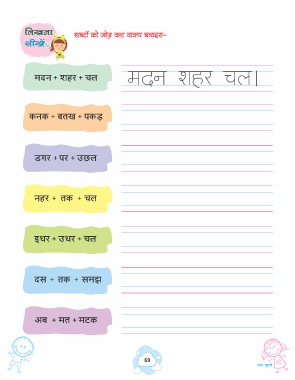 लिखना
सीखें
शब्दों को जोड़ कर वाक्य बनाइए-
मदन + शहर + चल
मदन शहर चल।
कनक + बतख + पकड़
डगर + पर + उछल
नहर + तक + चल
इधर + उधर + चल
दस + तक + समझ
अब + मत + मटक
69